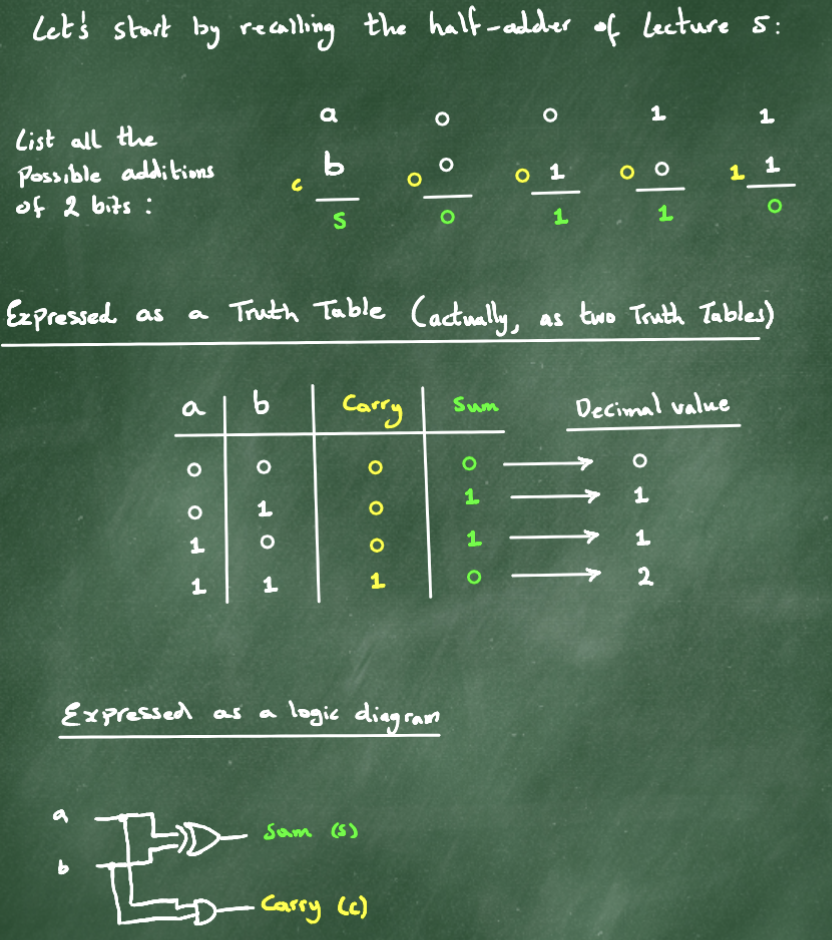 Let's start by recalling the half-adder of Lecture 5:
a 0 0 1 1
List all the
Possible additions
of 2 bits:
c b 0 0 0 1 0 0 1 1
s 0 1 1 0
Expressed as a Truth Table (actually, as two Truth Tables)
a b Carry Sum Decimal value
0 0 0 0 0
0 1 0 1 1
1 0 0 1 1
1 1 1 0 2
Expressed as a logic diagram
a
Sum (s)
b
Carry (c)